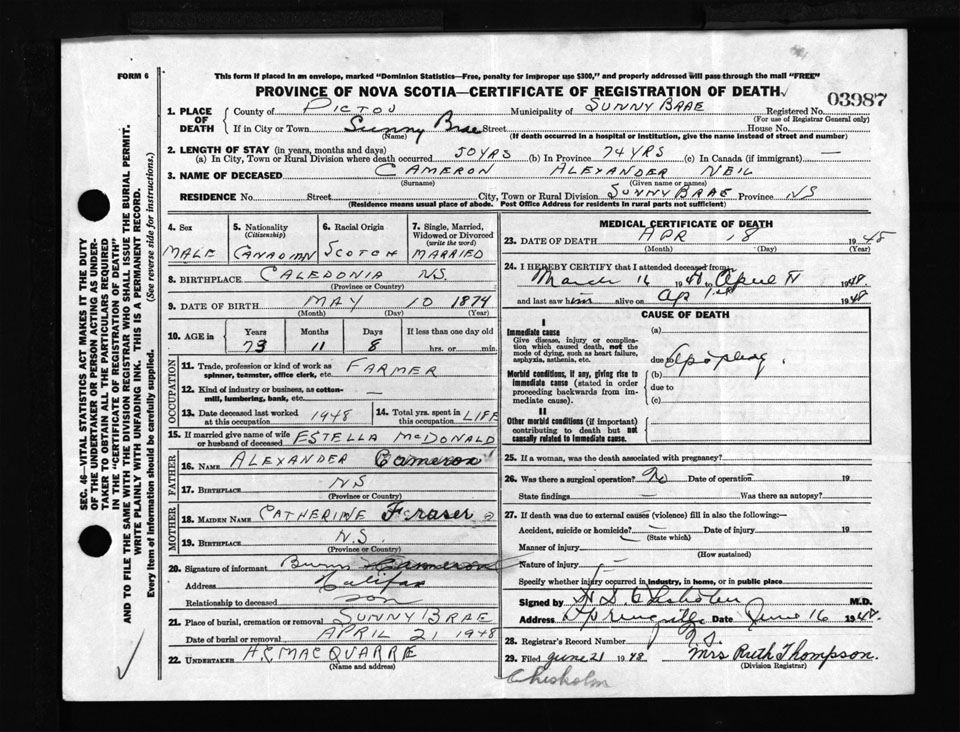 FORM 6
This form if placed in an envelope, marked "Dominion Statistics—Free, penalty for improper use $300," and properly addressed will pass through the mail "FREE"
PROVINCE OF NOVA SCOTIA—CERTIFICATE OF REGISTRATION OF DEATH
03987
1. PLACE OF DEATH County of PICTOU Municipality of SUNNY BRAE Registered No.
(For use of Registrar General only)
If in City or Town Sunny Brae Street House No.
(Name) (If death occurred in a hospital or institution, give the name instead of street and number)
2. LENGTH OF STAY (in years, months and days)
(a) In City, Town or Rural Division where death occurred 50 YRS (b) In Province 74 YRS (c) In Canada (if immigrant) —
3. NAME OF DECEASED CAMERON ALEXANDER NEIL
(Surname) (Given name or names)
RESIDENCE No. Street City, Town or Rural Division SUNNY BRAE Province NS
(Residence means usual place of abode. Post Office Address for residents in rural parts not sufficient)
SEC. 46—VITAL STATISTICS ACT MAKES IT THE DUTY
OF THE UNDERTAKER OR PERSON ACTING AS UNDER-
TAKER TO OBTAIN ALL THE PARTICULARS REQUIRED
IN THE "CERTIFICATE OF REGISTRATION OF DEATH"
AND TO FILE THE SAME WITH THE DIVISION REGISTRAR WHO SHALL ISSUE THE BURIAL PERMIT.
WRITE PLAINLY WITH UNFADING INK. THIS IS A PERMANENT RECORD.
Every item of information should be carefully supplied. (See reverse side for instructions.)
4. Sex MALE
5. Nationality (Citizenship) CANADIAN
6. Racial Origin SCOTCH
7. Single, Married, Widowed or Divorced (write the word) MARRIED
8. BIRTHPLACE CALEDONIA NS
(Province or Country)
9. DATE OF BIRTH MAY 10 1874
(Month) (Day) (Year)
10. AGE in Years Months Days If less than one day old
73 11 8 hrs. or min.
OCCUPATION
11. Trade, profession or kind of work as spinner, teamster, office clerk, etc. FARMER
12. Kind of industry or business, as cotton-mill, lumbering, bank, etc. —
13. Date deceased last worked at this occupation 1948
14. Total yrs. spent in LIFE
15. If married give name of wife or husband of deceased ESTELLA McDONALD
FATHER
16. NAME ALEXANDER Cameron
17. BIRTHPLACE NS
(Province or Country)
MOTHER
18. MAIDEN NAME CATHERINE Fraser
19. BIRTHPLACE N.S.
(Province or Country)
20. Signature of informant Cameron
Address Halifax
Relationship to deceased son
21. Place of burial, cremation or removal SUNNY BRAE
Date of burial or removal APRIL 21 1948
22. UNDERTAKER MACQUARRE
(Name and address)
MEDICAL CERTIFICATE OF DEATH
23. DATE OF DEATH APR 18 1948
(Month) (Day) (Year)
24. I HEREBY CERTIFY that I attended deceased from:
March 16 to April 1948
and last saw him alive on 1948
CAUSE OF DEATH
I
Immediate cause
Give disease, injury or complication which caused death, not the mode of dying, such as heart failure, asphyxia, asthenia, etc.
(a)
due to
Morbid conditions, if any, giving rise to immediate cause (stated in order proceeding backwards from immediate cause).
(b)
due to
(c)
II
Other morbid conditions (if important) contributing to death but not causally related to immediate cause.
25. If a woman, was the death associated with pregnancy?
26. Was there a surgical operation? No Date of operation 19
State findings — Was there an autopsy?
27. If death was due to external causes (violence) fill in also the following:—
Accident, suicide or homicide? — Date of injury 19
(State which)
Manner of injury
(How sustained)
Nature of injury —
Specify whether injury occurred in industry, in home, or in public place
Signed by Chisholm M.D.
Address Springville Date June 16 1948
28. Registrar's Record Number N.S.
29. Filed June 21 1948 Mrs Ruth Thompson.
(Division Registrar)
Chisholm